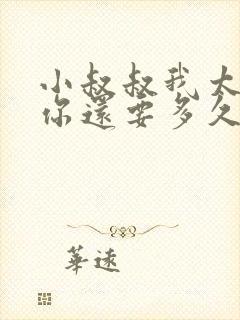 小叔叔我大
你還要多久
華遠